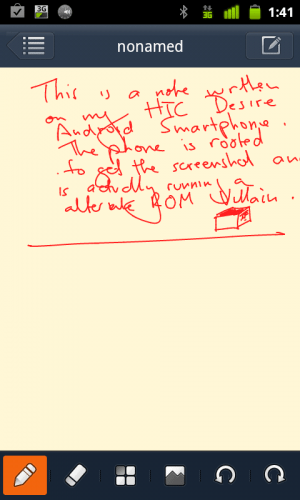 3G
3G
1:41
nonamed
This is a note written
on my HTC Desire
Android Smartphone.
The phone is rooted
to get the screenshot and
is actually running a
alternate ROM Villain.